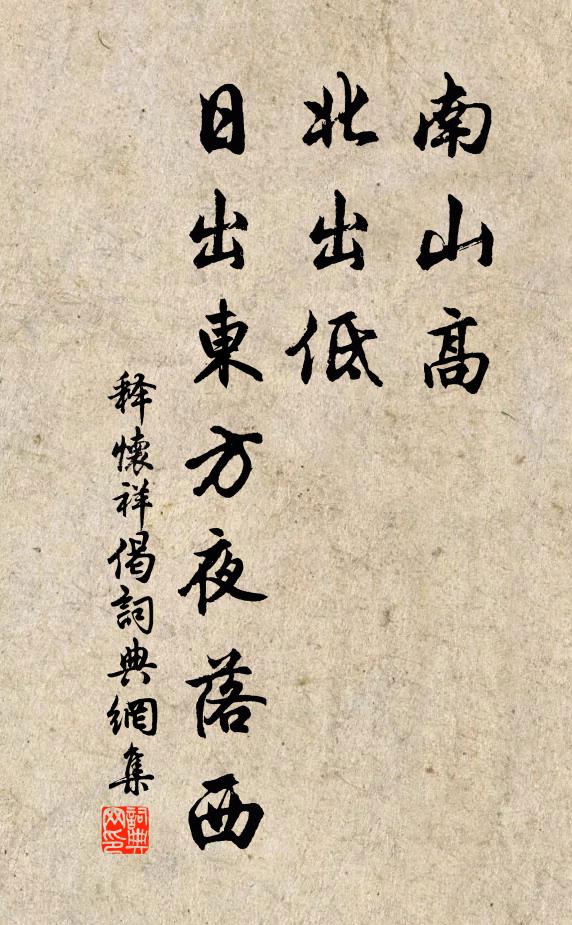 南山高
北出低
日出東方夜落西
释懷祥偈詞典網集
詞典网印